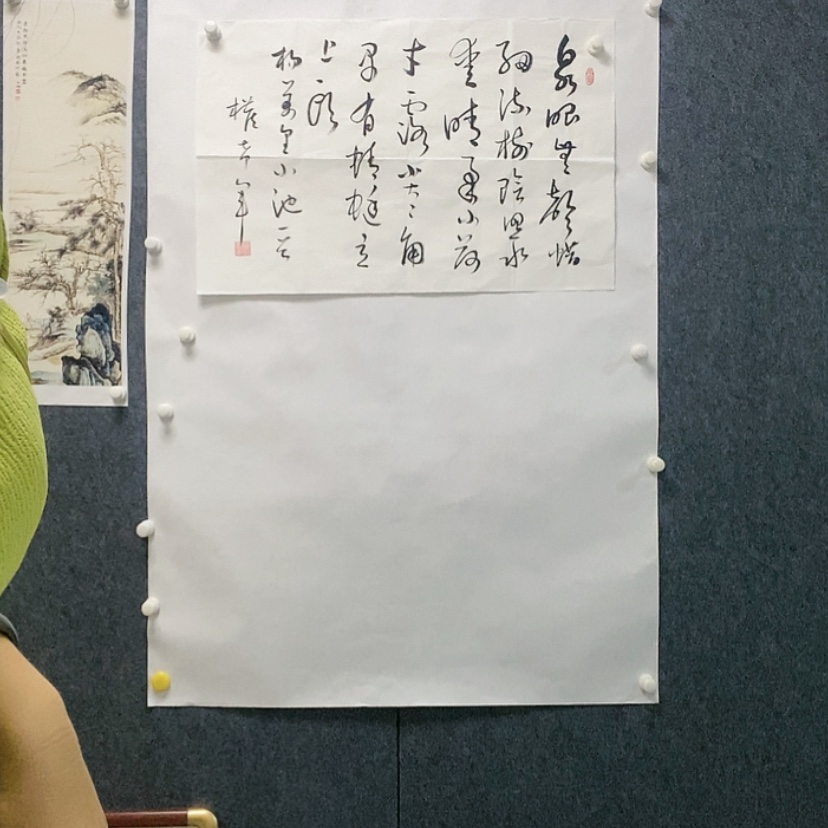 泉眼無聲惜
細流樹陰照水
愛晴柔小荷
才露尖〻角
早有蜻蜓立
上頭
楊萬里小池一首
權